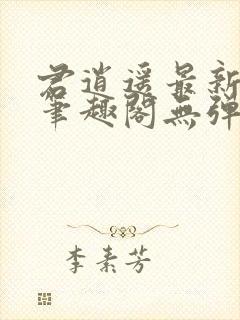 君逍遥最新
笔趣阁无弹
李素芳